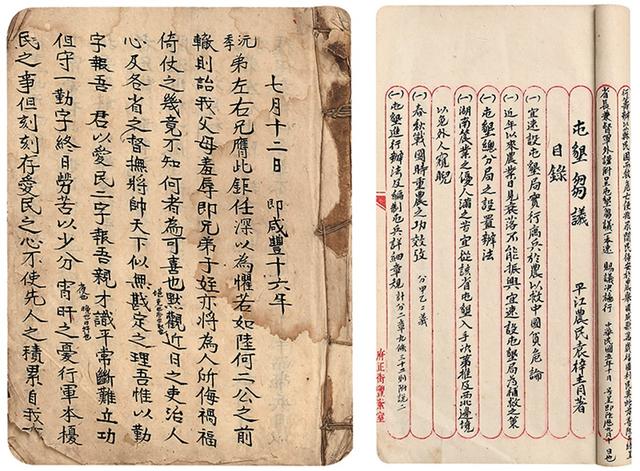 七月十二日 即咸豐十六年
沅季弟左右兄膺此鉅任深以為懼若如陸何二公之前
轍則詒我父母羞辱即兄弟子姪亦將為人所侮禍福
倚仗之幾竟不知何者為可喜也默觀近日之吏治人
心及各省之督撫將帥天下似無戡定之理吾惟以勤
字報吾 君以愛民二字報吾 親才識平常斷難立功
但守一勤字終日勞苦以少分 宵旰之憂行軍本擾
民之事但刻刻存愛民之心不使先人之積累自我
省長兼督軍外謹附呈屯墾芻議一本速 賜議決施行 中華民國五年十月
屯墾芻議 平江農民袁梓青著
目錄
(一)宜速設屯墾局實行寓兵於農以救中國貧危論
(一)近年以來農業日見衰落不能振興宜速設屯墾局為補救之策
(一)屯墾總分局之設置辦法
(一)湖南農業之優人滿之苦宜從該省屯墾入手次第推及西北邊境
以免外人窺覬
(一)春秋戰國時重農之功效攷 分甲乙二義
(一)屯墾進行辦法及編制屯兵詳細章規 計分二章九條三十三則附說二
府正街